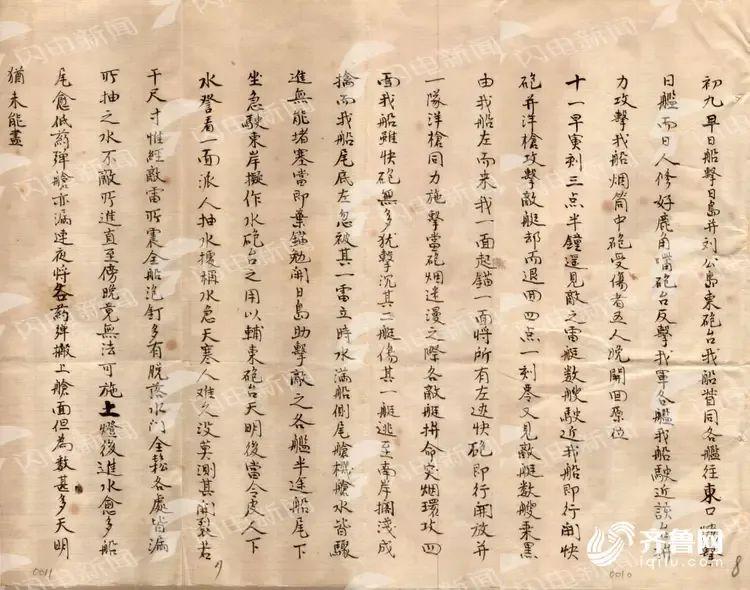 初九早日船擊日島并刘公島東砲台我船督同各艦往東口
日艦而日人修好鹿角嘴砲台反擊我軍各艦我船駛近該台
力攻擊我船烟筒中砲受傷者五人晚開回原位
十一早寅刻三点半鐘還見敵之雷艇数艘駛近我船即行開快
砲并洋槍攻擊敵艇却而退回四点一刻零又見敵艇数艘乘黑
由我船左而来我一面起錨一面將所有左边快砲即行開放并
一隊洋槍同力施擊當砲烟迷漫之際各敵艇拼命突烟環攻四
面我船雖快砲無多犹擊沉其二艇傷其一艇逃至南岸擱淺成
擒而我船尾底左忽被其一雷立時水滿船側尾艙機艙水皆驟
進無能堵塞當即棄錨勉開日島助擊敵之各艦半途船尾下
坐急駛東岸擬作水砲台之用以輔東砲台天明後當令皮人下
水登看一面派人抽水据稱水急天寒人难久没莫測其開裂若
干尺寸惟經敵雷所震全船泡釘多有脱落水门全鬆各處皆漏
所抽之水不敵所進直至傍晚竟無法可施上燈後進水愈多船
尾愈低葯弹艙亦漏連夜將各葯弹搬上艙面但為数甚多天明
猶未能盡
0011
9
0010
8
闪电新闻
齐鲁网
iqilu.com